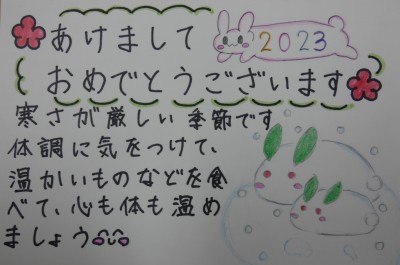 あけまして
2023
おめでとうございます
寒さが厳しい季節です
体調に気をつけて、
温かいものなどを食
べて、心も体も温め
ましょう